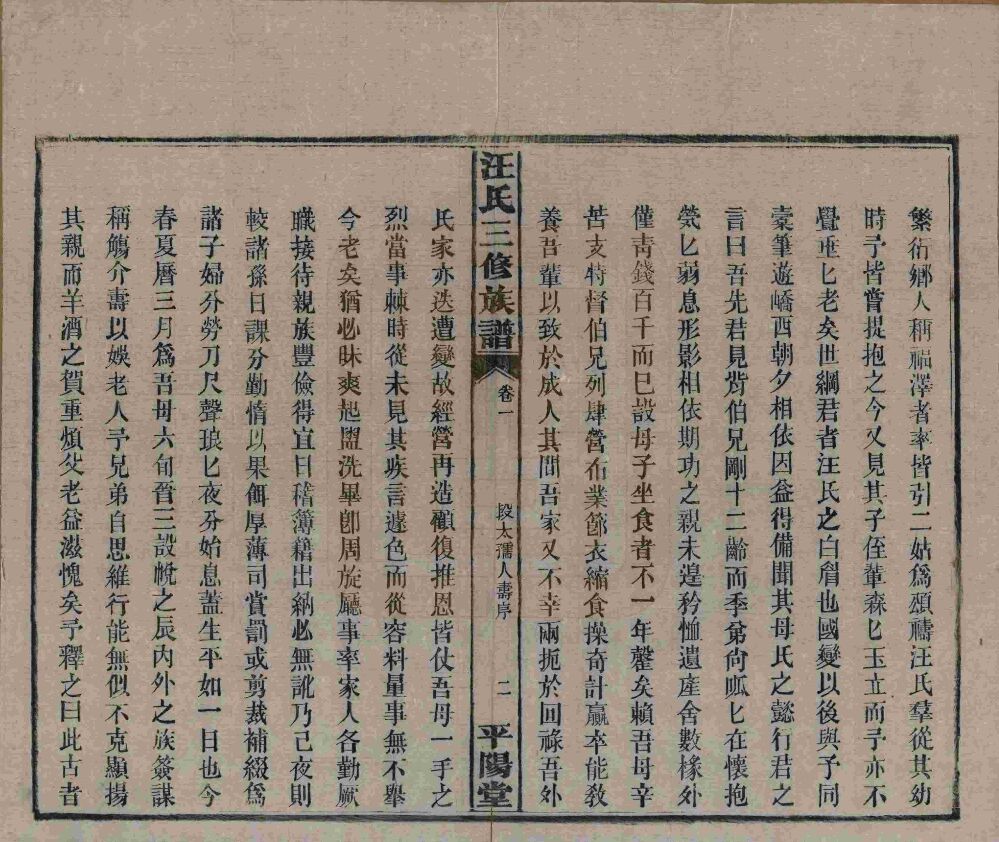 繁衍鄉人稱福澤者率皆引二姑爲頌禱汪氏羣從其幼
時予皆嘗提抱之今又見其子侄輩森匕玉立而予亦不
覺垂匕老矣世綱君者汪氏之白眉也國變以後與予同
橐筆遊嶠西朝夕相依因益得備聞其母氏之懿行君之
言曰吾先君見背伯兄剛十二齡而季弟尙呱匕在懷抱
煢匕弱息形影相依期功之親未遑矜恤遺產舍數椽外
僅靑錢百千而已設母子坐食者不一年罄矣賴吾母辛
苦支持督伯兄列肆營布業節衣縮食操奇計贏卒能敎
養吾輩以致於成人其間吾家又不幸兩扼於回祿吾外
汪氏三修族譜
卷一
段太孺人壽序
二
平陽堂
氏家亦迭遭變故經營再造顧復推恩皆仗吾母一手之
烈當事棘時從未見其疾言遽色而從容料量事無不舉
今老矣猶必昧爽起盥洗畢卽周旋廳事率家人各勤厥
職接待親族豐儉得宜日稽簿籍出納必無訛乃已夜則
較諸孫日課分勤惰以果餌厚薄司賞罰或剪裁補綴爲
諸子婦分勞刀尺聲琅匕夜分始息蓋生平如一日也今
春夏曆三月爲吾母六旬晉三設帨之辰內外之族簽謀
稱觴介壽以娛老人予兄弟自思維行能無似不克顯揚
其親而羊酒之賀重煩父老益滋愧矣予釋之曰此古者